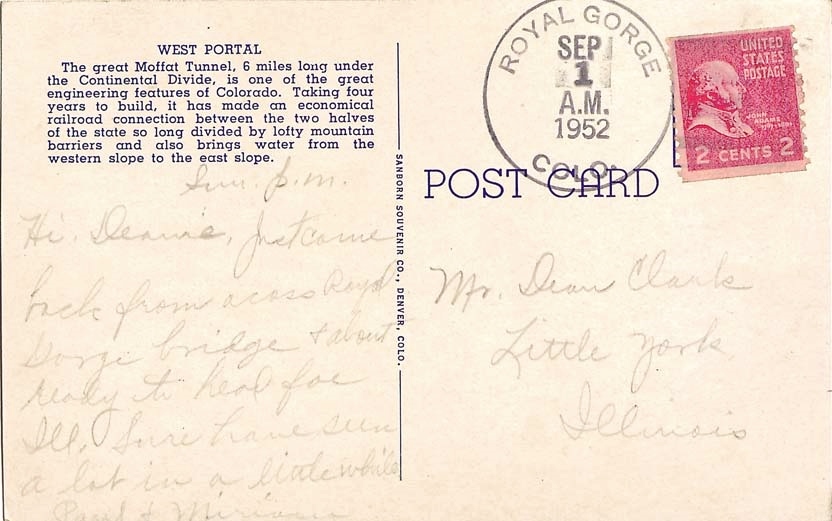 WEST PORTAL
The great Moffat Tunnel, 6 miles long under
the Continental Divide, is one of the great
engineering features of Colorado. Taking four
years to build, it has made an economical
railroad connection between the two halves
of the state so long divided by lofty mountain
barriers and also brings water from the
western slope to the east slope.
Sun. p.m.
Hi. Deannie, Just came
back from acoss Royal
Gorge bridge & about
ready to head for
Ill. Sure have seen
a lot in a little while
Paul & Miriam
SANBORN SOUVENIR CO., DENVER, COLO.
ROYAL GORGE
SEP
1
A.M.
1952
COLO.
UNITED
STATES
POSTAGE
JOHN
ADAMS
2 CENTS 2
POST CARD
Mr. Dean Clark
Little York
Illinois